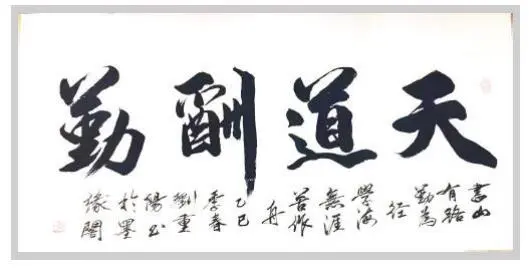 天道酬勤
書山
有路
勤為
径
學海
無涯
苦作
舟
乙巳
季春
劉重
陽书
於墨
缘閣